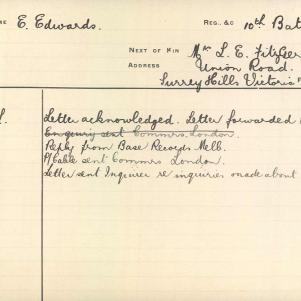 ME E. Edwards. REG., &C 10th Bat
NEXT OF KIN Mrs L. E. Fitzger
ADDRESS Union Road.
Surrey Hills Victoria
Letter acknowledged. Letter forwarded
Enquiry sent Commrs. London.
Reply from Base Records Melb.
P/Cable sent Commrs London.
Letter sent Inquirer re inquiries made about